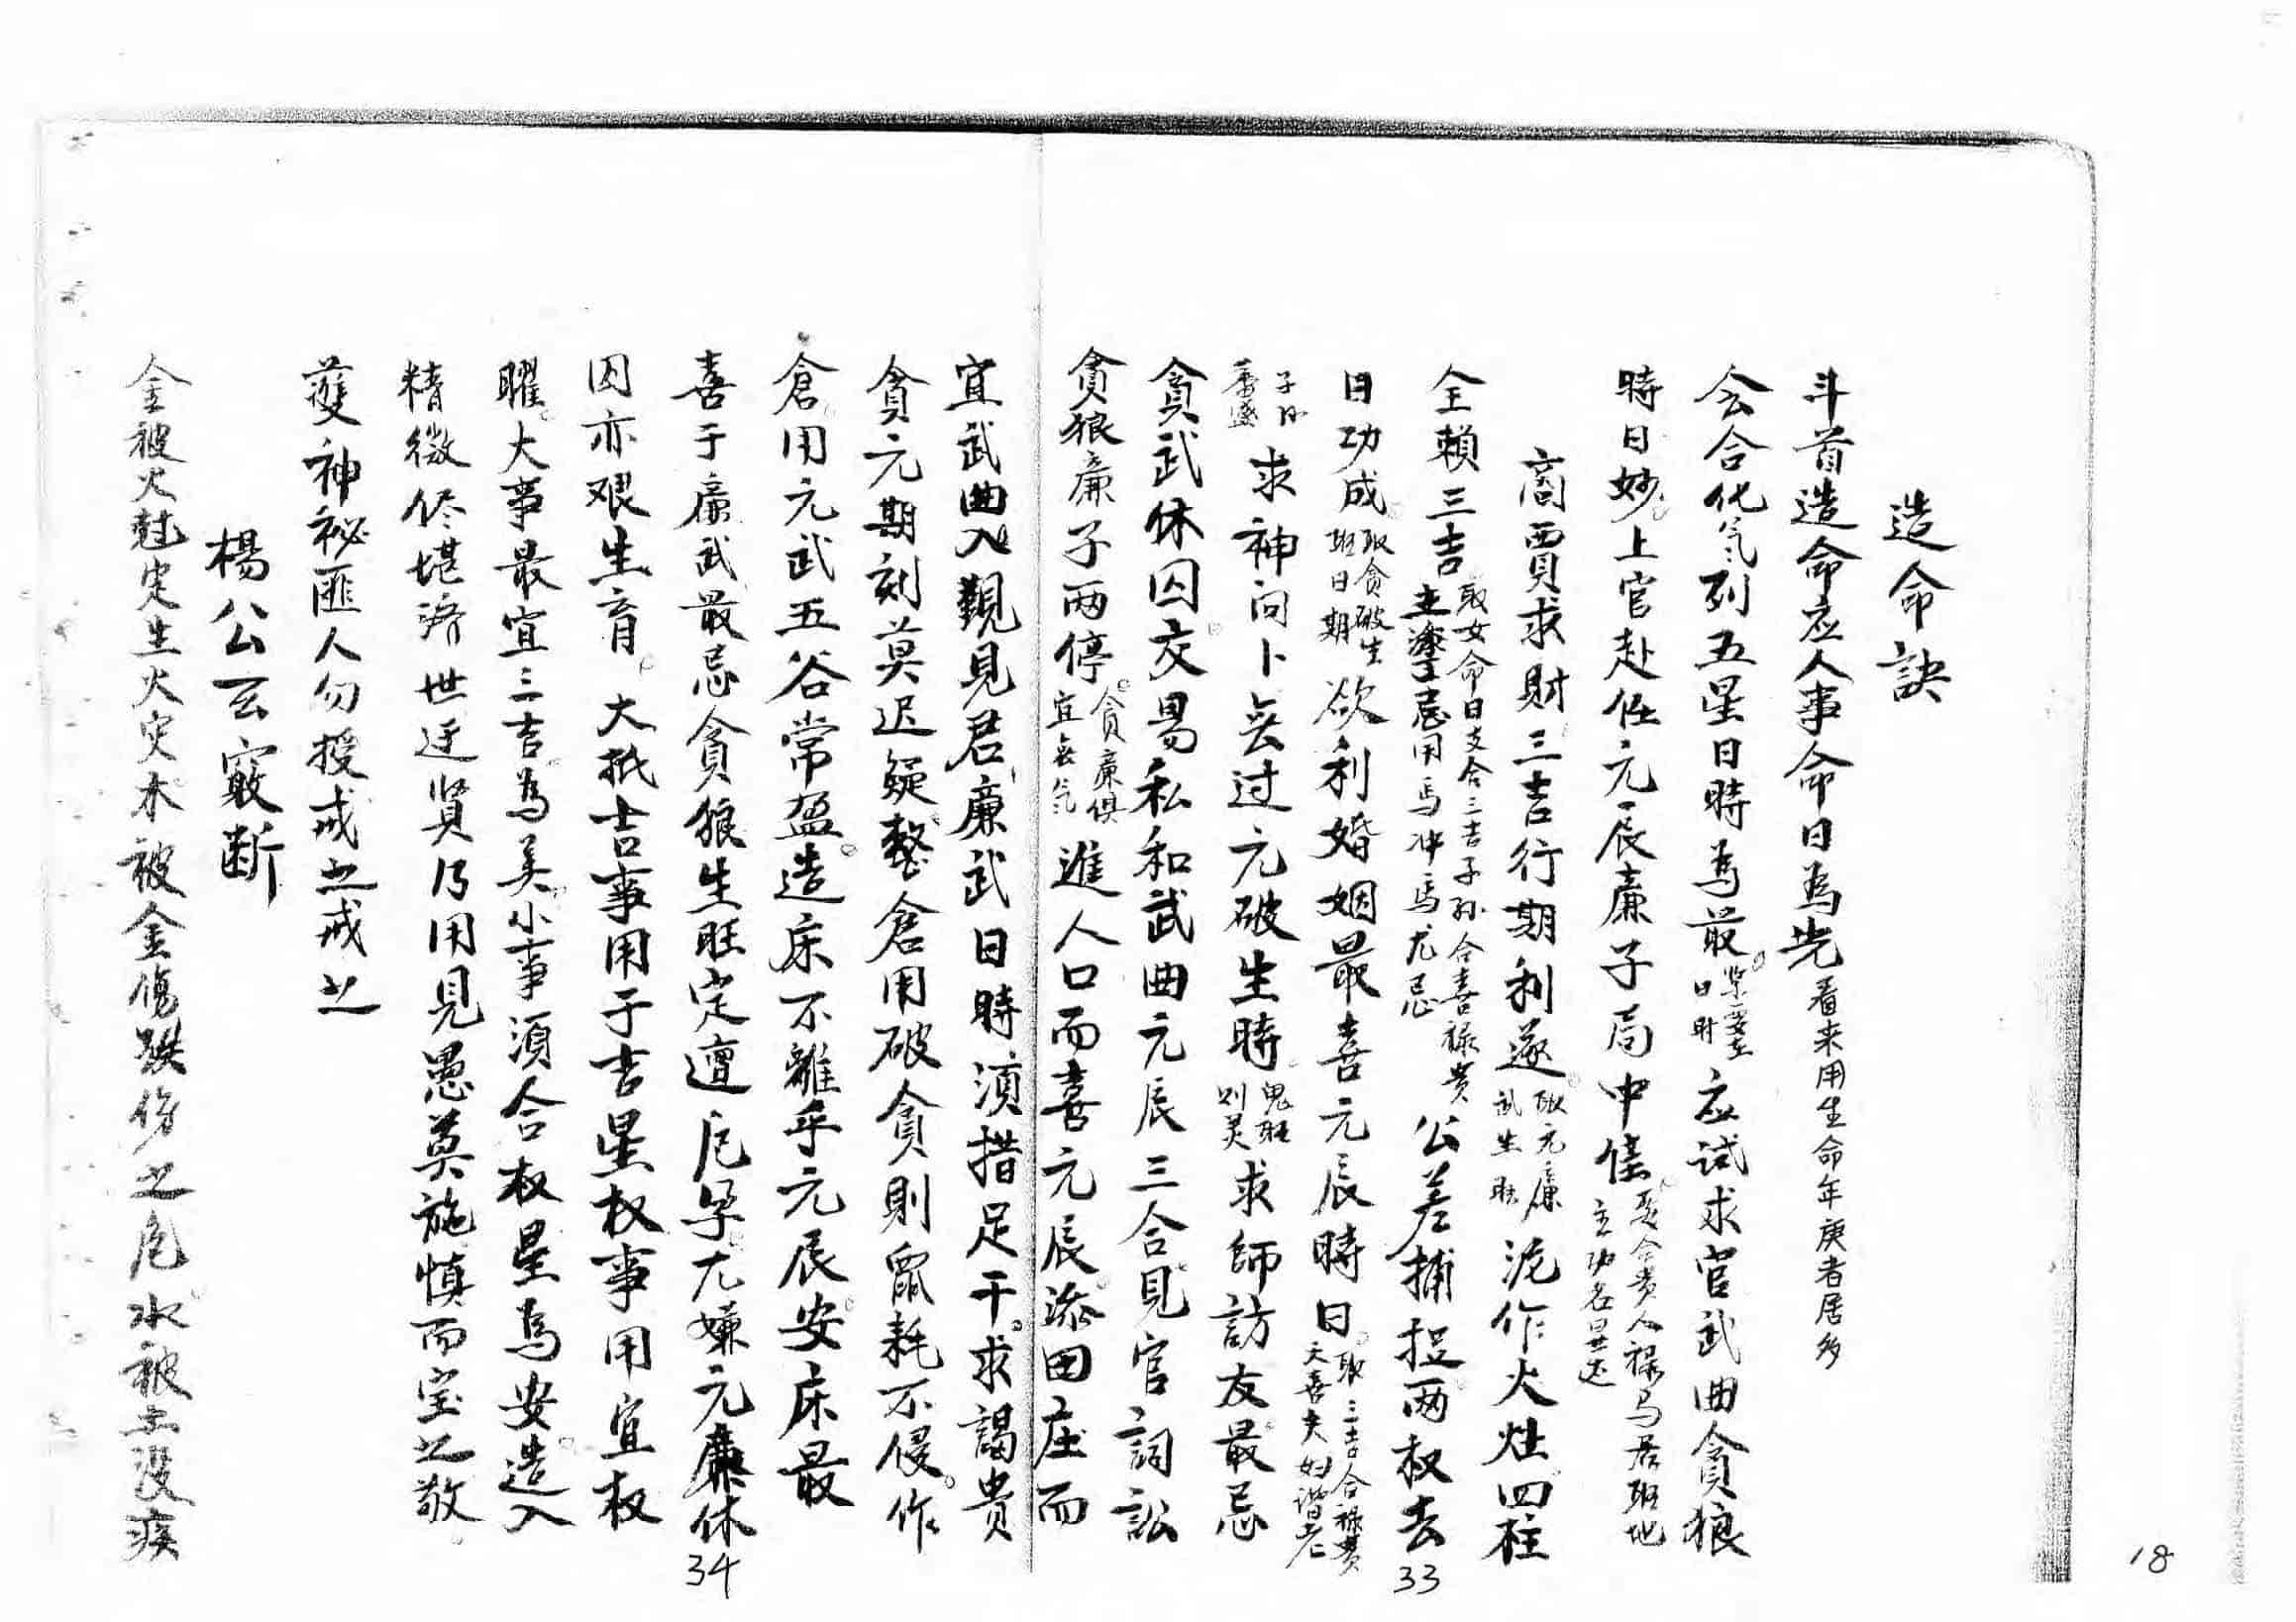 造命訣
斗首造命应人事命日為先看来用生命年庚者居多
会合化氣列五星日時為最紧要在日时应試求官武曲貪狼
時日妙上官赴任元辰廉子局中佳要合贵人禄马居旺地主功名显达
商賈求財三吉行期利遂取元廉武生旺泥作火灶四柱
全賴三吉取女命日支合三吉子孙合喜禄贵主灶忌用馬冲馬尤忌公差捕捉两权去
日功成取貪破生旺日期欲利婚姻最喜元辰時日取三吉合禄贵天喜夫妇谐老
子孙蕃盛求神问卜无过元破生時鬼旺则灵求師訪友最忌
貪武休囚交易私和武曲元辰三合見官詞訟
貪狼廉子两停貪廉俱宜无气進人口而喜元辰添田庄而
宜武曲入覲見君廉武日時須措足干求謁贵
貪元期刻莫迟疑整倉用破貪則鼠耗不侵作
倉用元武五谷常盈造床不離乎元辰安床最
喜于廉武最忌貪狼生旺定遭厄孕尤嫌元廉休
囚亦艰生育大抵吉事用于吉星权事用宜权
曜大事最宜三吉為美小事須合权星為安造入
精微侭堪济世逢贤乃用見愚莫施慎而宝之敬
護神祕匪人勿授戒之戒之
楊公云竅断
金被火尅定生火灾木被金傷跌伤之危水被土没疾
33
34
18